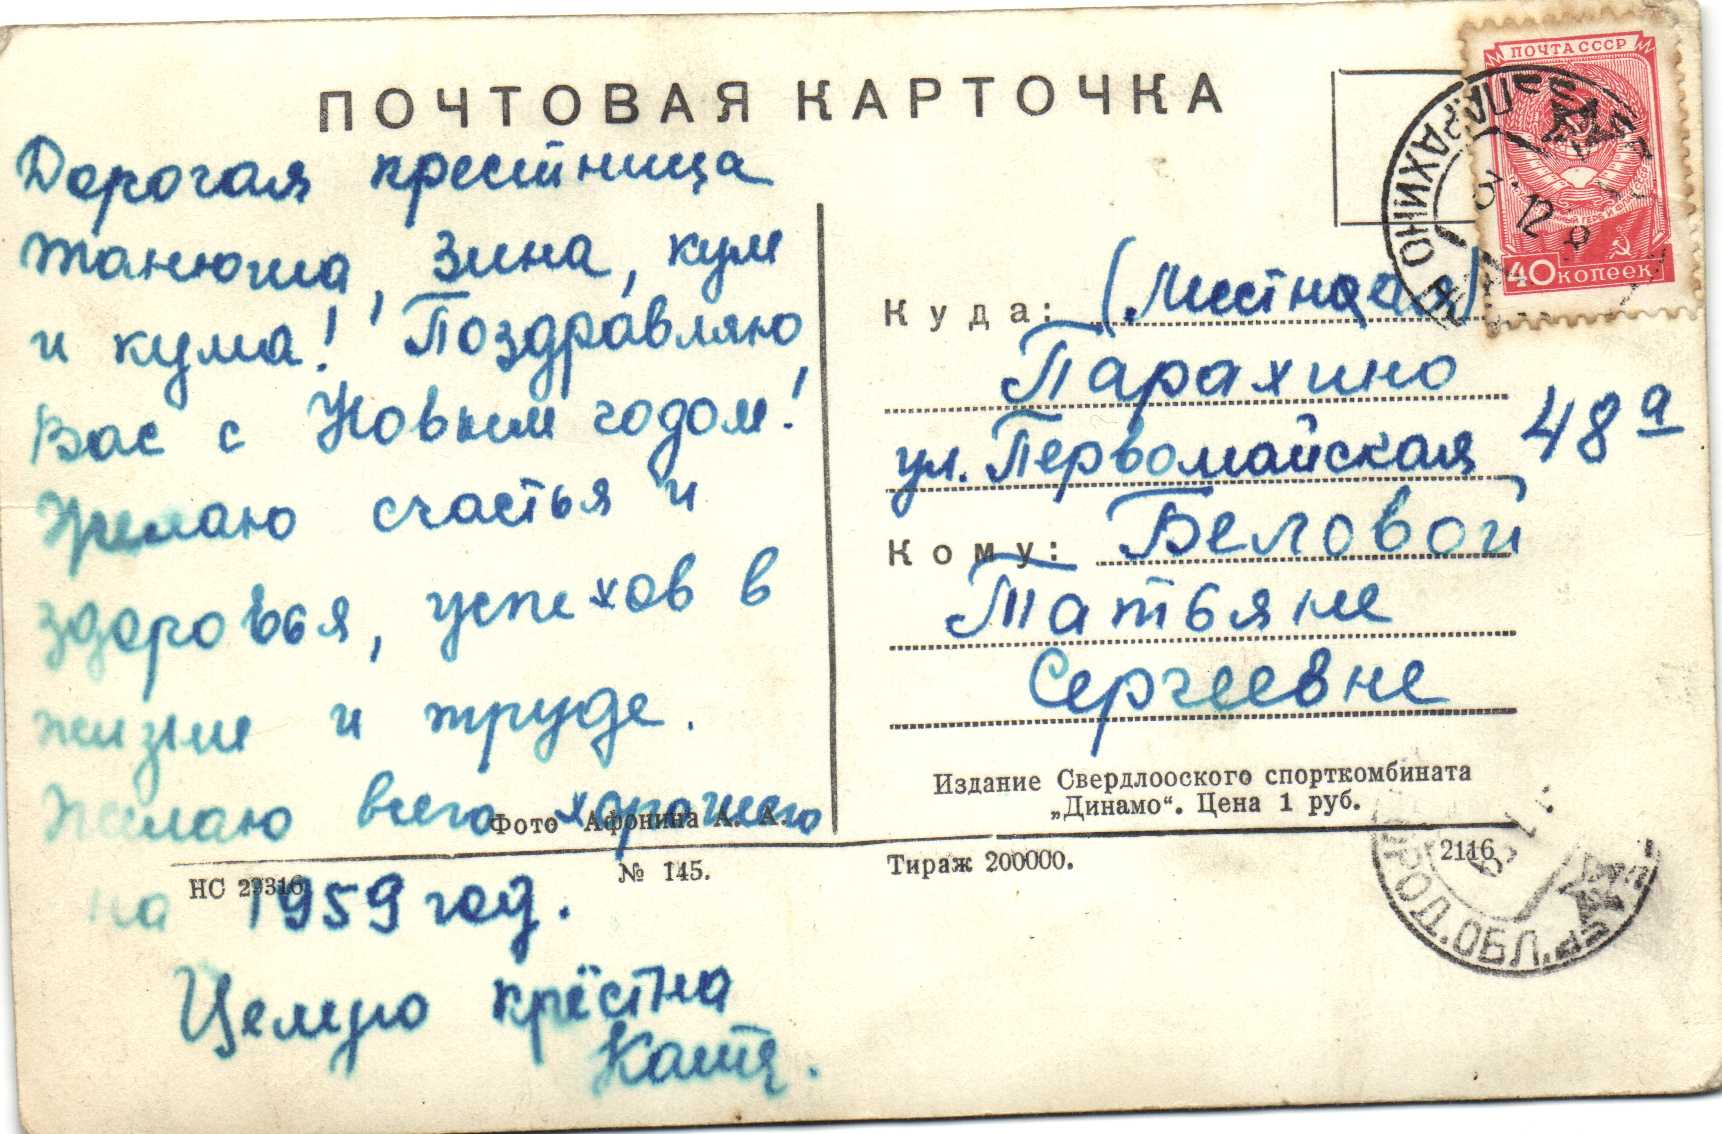 ПОЧТОВАЯ КАРТОЧКА
Дорогая крестница
Танюша, Зина, кум
и кума! Поздравляю
Вас с Новым годом!
Желаю счастья и
здоровья, успехов в
жизни и труде.
Желаю всего хорошего
на 1959 год.
Целую крёстна
Катя.
ПОЧТА СССР
40 КОПЕЕК
ПАРАХИНО
12
Куда: (Местная)
Парахино
ул. Первомайская 48а
Кому: Беловой
Татьяне
Сергеевне
Издание Свердлооского спорткомбината
„Динамо“. Цена 1 руб.
Фото Афонина А. А.
НС 29316
№ 145.
Тираж 200000.
2116
ГОРОД. ОБЛ.